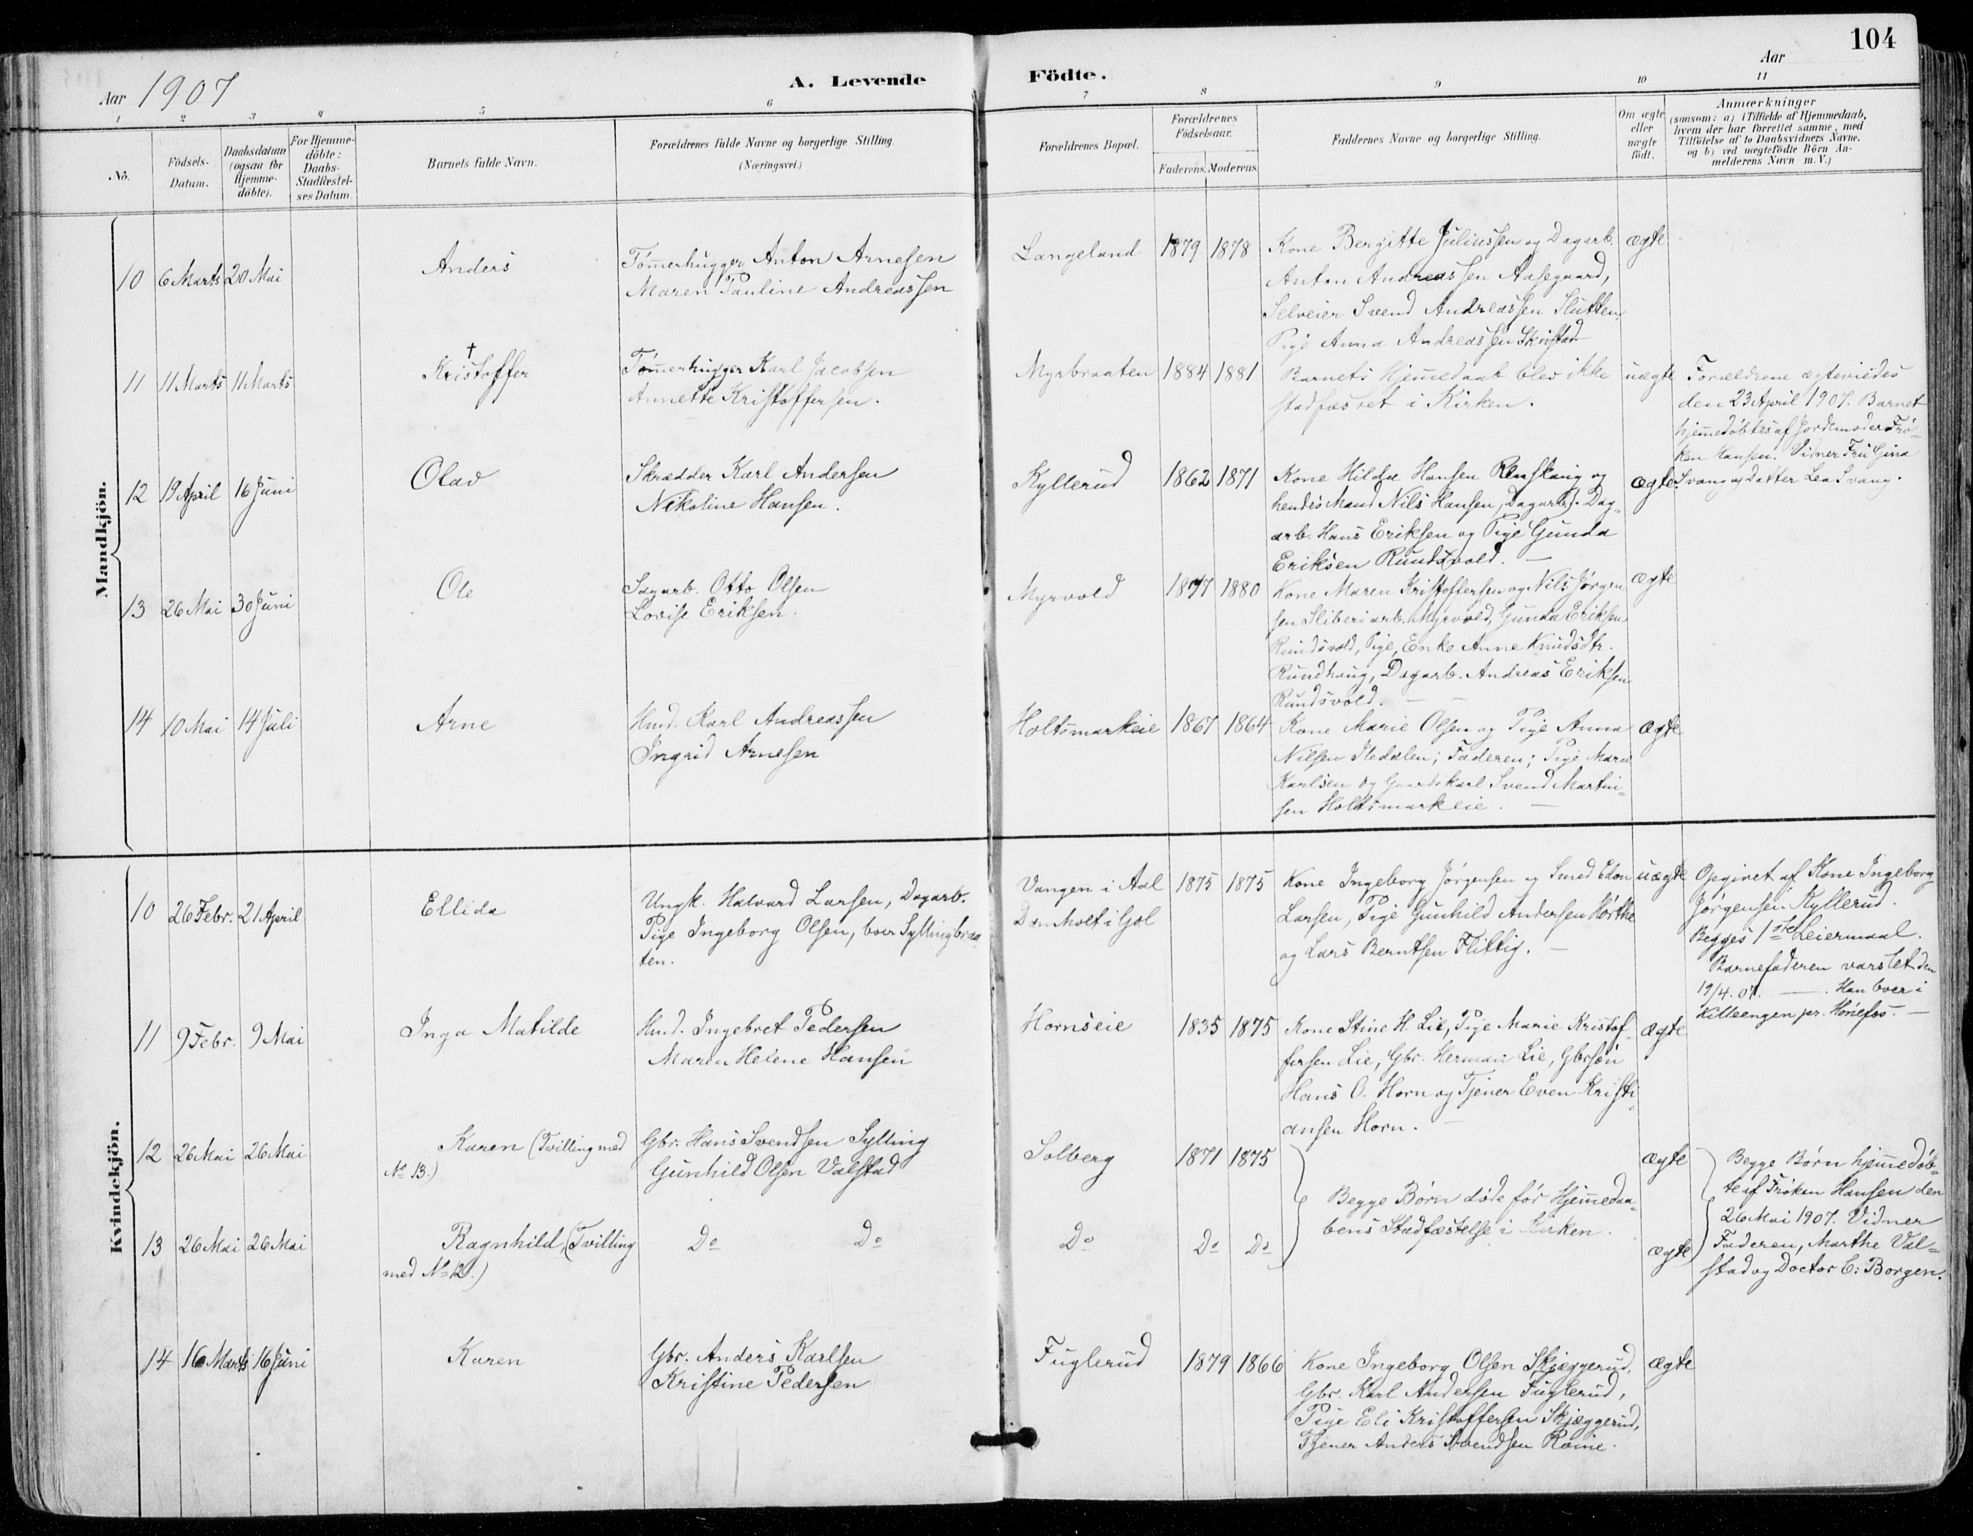 104
Aar 1907
A. Levende Födte.
Aar
1 2 3 4 5 6 7 8 9 10 11
No.
Födsels-Datum.
Daabsdatum (ogsaa for Hjemmedöbte).
For Hjemmedöbte: Daabs-Stadfæstelses Datum
Barnets fulde Navn.
Forældrenes fulde Navne og borgerlige Stilling.
(Næringsvei.)
Forældrenes Bopæl.
Forældrenes Födselsaar.
Faderens. Moderens.
Faddernes Navne og borgerlige Stilling.
Om ægte eller uægte födt.
Anmærkninger
(saasom: a) i Tilfælde af Hjemmedaab,
hvem der har forrettet samme, med
Tilföielse af to Daabsvidners Navne.
og b) ved uægtefödte Börn An-
melderens Navn m. V.)
Mandkjön.
10 6 Marts 20 Mai
Anders
Tømerhugger Anton Arnesen
Maren Pauline Andreassen
Langeland 1879 1878
Kone Bergitte Juliussen og Dagarb.
Anton Andreassen Aasegaard,
Selveier Svend Andreassen Slutten,
Pige Anna Andreassen Skrifstad
ægte
11 11 Marts 11 Marts
†
Kristoffer
Tømerhugger Karl Jacobsen
Annette Kristoffersen.
Myrbraaten 1884 1881
Barnets Hjemedaab blev ikke
stadfæstet i Kirken.
uægte
Forældrene ægteviedes
den 23 April 1907. Barnet
hjemedøbtes af Jordemoder Frø-
ken Hansen. Vidner Fru Gina
Svang og Datter Lea Svang.
12 19 April 16 Juni
Olav
Skrædder Karl Andersen
Nikoline Hansen.
Kyllerud 1862 1871
Kone Hilda Hansen Renskaug og
hendes Mand Nils Hansen, Dagarb. Dag-
arb. Hans Eriksen og Pige Gunda
Eriksen Rundsvold.
ægte
13 26 Mai 30 Juni
Ole
Sagarb. Otto Olsen
Lovise Eriksen.
Myrvold 1877 1880
Kone Maren Kristoffersen og Nils Jørgen
sen Sliberiarb. Myrvold, Gunda Eriksen
Rundsvold, Pige, Enke Anne Knudsdtr.
Rundhaug, Dagarb. Andreas Eriksen
Rundsvold.
ægte
14 10 Mai 14 Juli
Arne
Hmd. Karl Andreassen
Ingrid Arnesen
Holtsmarkeie 1867 1864
Kone Marie Olsen og Pige Anna
Nilsen Iledalen; Faderen; Pige Maren
Karlsen og Gaardskarl Svend Martin-
sen Holtsmarkeie.
ægte
Kvindekjön.
10 26 Febr. 21 April
Ellida
Ungk. Halvard Larsen, Dagarb.
Pige Ingeborg Olsen, boer Syllingbraa
ten.
Vangen i Aal 1875 1875
Do. i Gol
Kone Ingeborg Jørgensen og Smed Edon
Larsen, Pige Gunhild Andersen Hørthe
og Lars Berntsen Flittig.
uægte
Opgivet af Kone Ingeborg
Jørgensen Kyllerud.
Begges 1ste Leiermaal.
Barnefaderen varslet den
19/4.07. Han boer i
Killeengen pr. Hönefos.
11 9 Febr. 9 Mai
Inga Matilde
Hmd. Ingebret Pedersen
Maren Helene Hansen
Hornseie 1835 1875
Kone Stine H. Lie, Pige Marie Kristof-
fersen Lie, Gbr. Herman Lie, Gbrsøn
Hans O. Horn og Tjener Even Kristi-
ansen Horn.
ægte
12 26 Mai 26 Mai
Karen (Tvilling med
No 13.)
Gbr. Hans Svendsen Sylling
Gunhild Olsen Valstad
Solberg 1871 1875
Begge Børn døde før Hjemedaa-
bens Stadfæstelse i Kirken.
ægte
Begge Børn hjemedøb-
te af Frøken Hansen den
26 Mai 1907. Vidner
Faderen, Marthe Val-
stad og Doctor C: Borgen.
13 26 Mai 26 Mai
Ragnhild, (Tvilling
med No 12.)
Do Do
Do Do Do
ægte
14 16 Marts 16 Juni
Karen
Gbr. Anders Karlsen
Kristine Pedersen
Fuglerud 1879 1866
Kone Ingeborg Olsen Skjæggerud,
Gbr. Karl Andersen Fuglerud,
Pige Eli Kristoffersen Skjæggerud,
Tjener Anders Svendsen Raine.
ægte